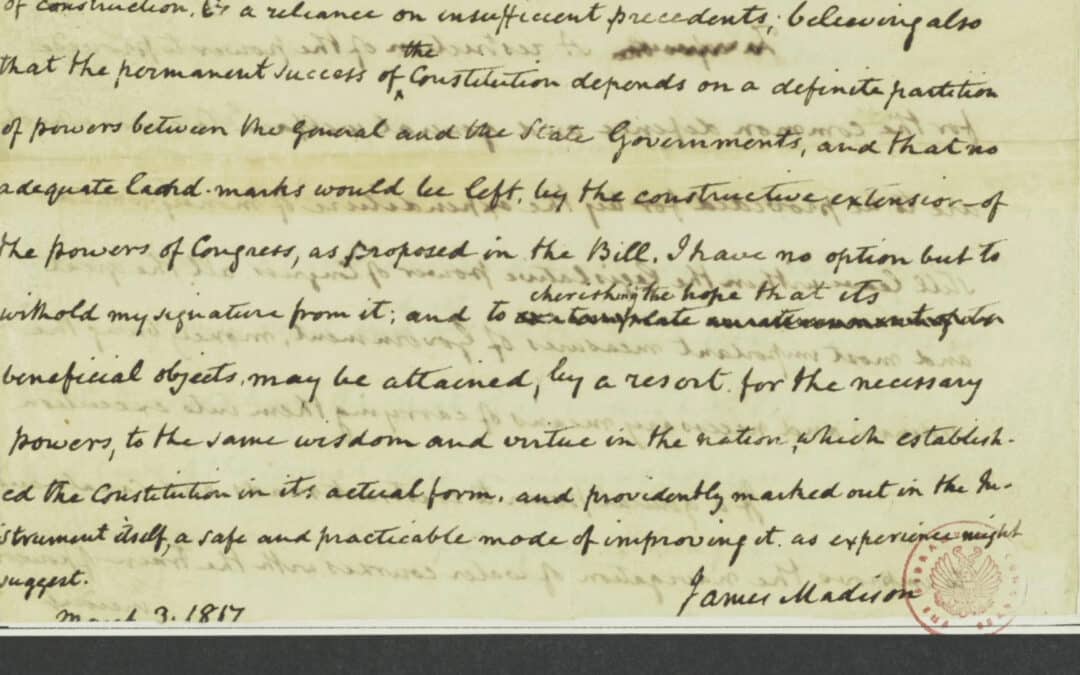 of construction, & a reliance on insufficient precedents; believing also
that the permanent success of the Constitution depends on a definite partition
of powers between the General and the State Governments, and that no
adequate land-marks would be left, by the constructive extension of
the powers of Congress, as proposed in the Bill. I have no option but to
cherishing the hope that its
withold my signature from it; and to
beneficial objects, may be attained, by a resort for the necessary
powers, to the same wisdom and virtue in the nation, which establish-
ed the Constitution in its actual form, and providently marked out in the In-
strument itself, a safe and practicable mode of improving it, as experience might
suggest.
James Madison
March 3. 1817